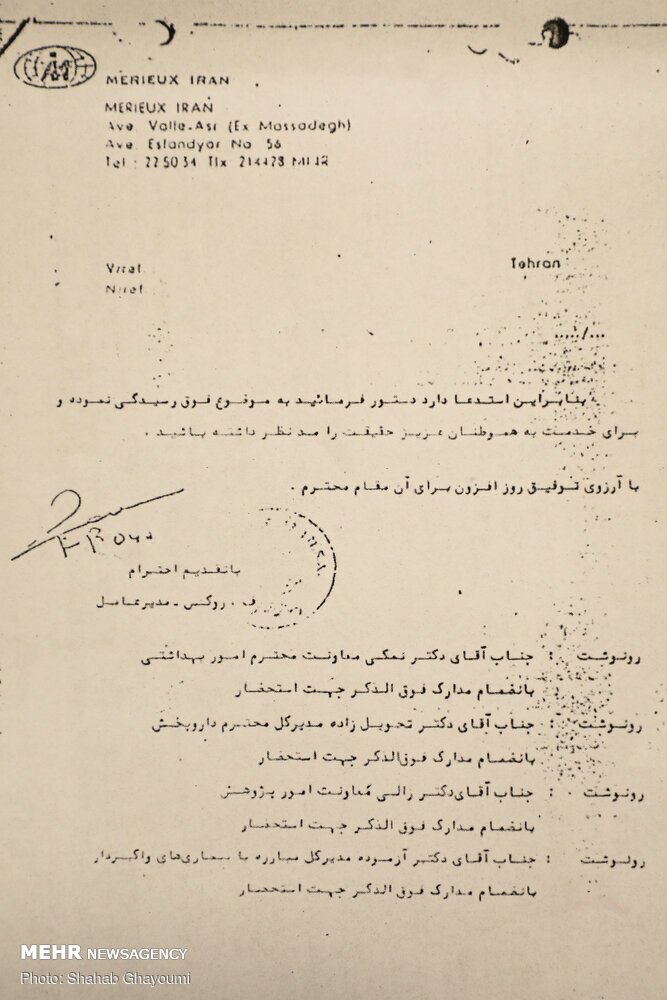 MERIEUX IRAN
MERIEUX IRAN
Ave. Valie-Asr (Ex Mossadegh)
Ave. Esfandyar No 56
Tel : 22 50 34 Tlx 214478
V/ref.
Tehran
N/ref.
..../...
بنابراین استدعا دارد دستور فرمائید به موضوع فوق رسیدگی نموده و
برای خدمت به هموطنان عزیز حقیقت را مد نظر داشته باشید .
با آرزوی توفیق روز افزون برای آن مقام محترم .
باتقدیم احترام
ف . روکس - مدیرعامل
رونوشت : جناب آقای دکتر نمکی معاونت محترم امور بهداشتی
بانضمام مدارک فوق الذکر جهت استحضار
رونوشت : جناب آقای دکتر تحویل زاده مدیرکل محترم داروبخش
بانضمام مدارک فوق‌الذکر جهت استحضار
رونوشت : جناب آقای‌دکتر زالی معاونت امور پژوهش
بانضمام مدارک فوق الذکر جهت استحضار
رونوشت : جناب آقای دکتر آزموده مدیرکل مبارزه با بیماری‌های واگیردار
بانضمام مدارک فوق الذکر جهت استحضار
MEHR NEWSAGENCY
Photo: Shahab Ghayoumi